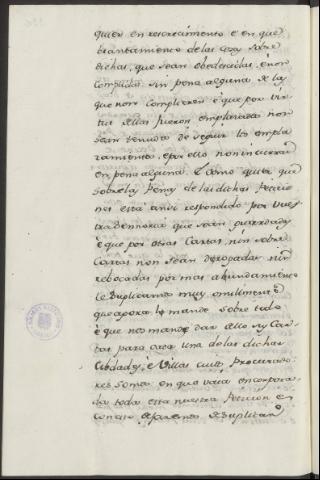 quier en recrecimiento e en que
brantamiento de las cosas sobre
dichas, que sean obedecidas, é non
complidas sin pena alguna de los
que non complieren é que por vir
tud dellas fueron emplazados non
sean tenudos de seguir los empla
zamientos, e por ello non incurran
en pena alguna. E como quier que
sobre la pena de las dichas Peticio
nes está ansi respondido por vues
tra Señoria que sean guardadas
é que por otras Cartas, nin sobre
Cartas non sean derogadas nin
rebocadas por mas abundamiento
le Suplicamos muy omilmente
que agora lo mande sobre todo
é que nos mande dar dello sus Car
tas para cada una de las dichas
Cibdades, é Villas cuios Procurado
res somos en que vaia encorpora
da toda esta nuestra Peticion en